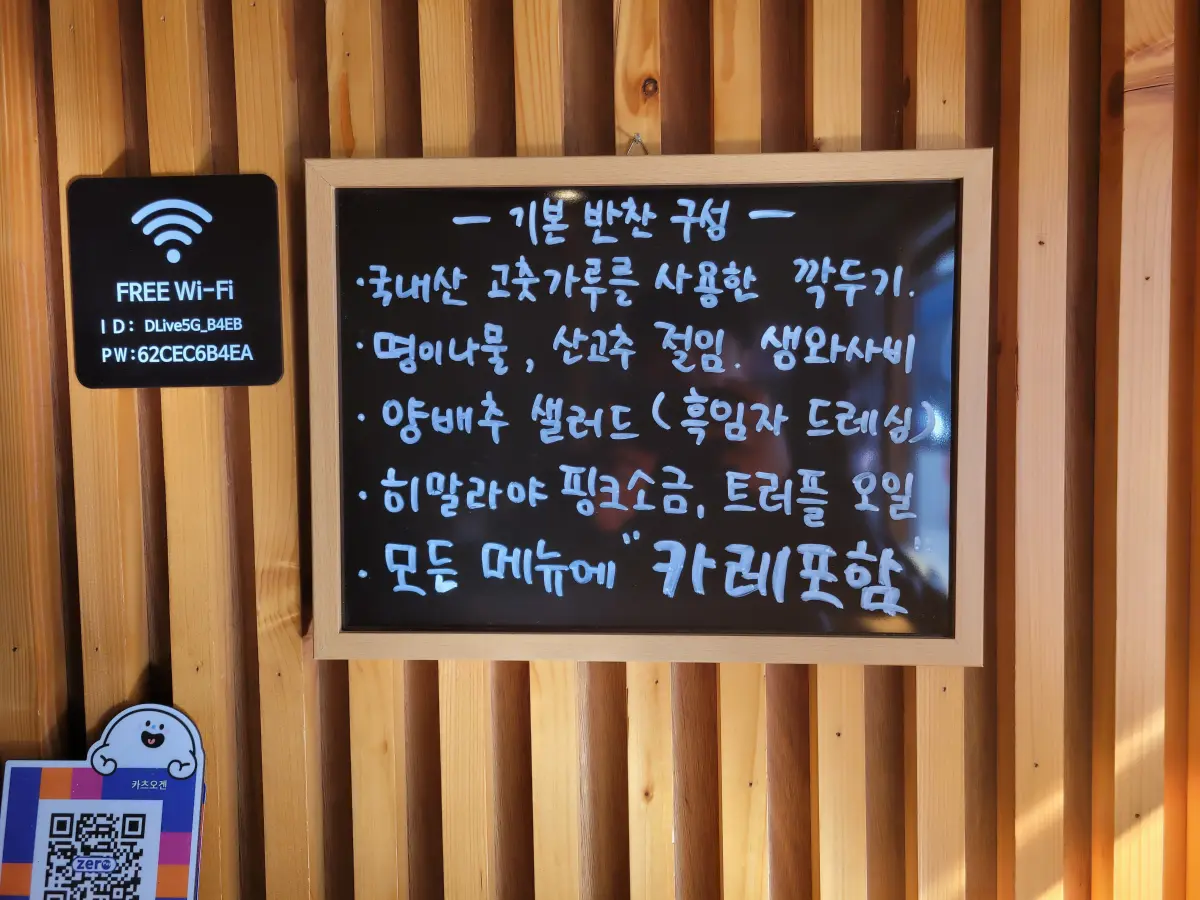 FREE Wi-Fi
ID: DLive5G_B4EB
PW:62CEC6B4EA
- 기본 반찬 구성 -
·국내산 고춧가루를 사용한 깍두기.
·명이나물, 산고추 절임. 생와사비
·양배추 샐러드 (흑임자 드레싱)
·히말라야 핑크소금, 트러플 오일
·모든 메뉴에 "카레포함"
카츠오겐
zero